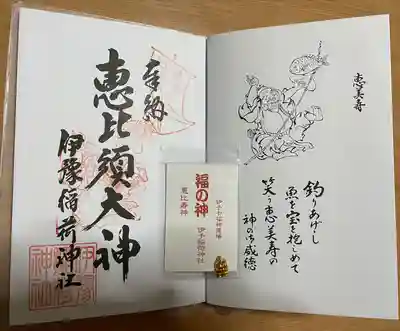 奉納
恵比須大神
伊豫稲荷神社
恵美寿
釣りあげし
魚を宝を抱しめて
笑う恵美寿の
神の御威徳
伊予七福神霊場
福の神
恵比寿神
伊予稲荷神社